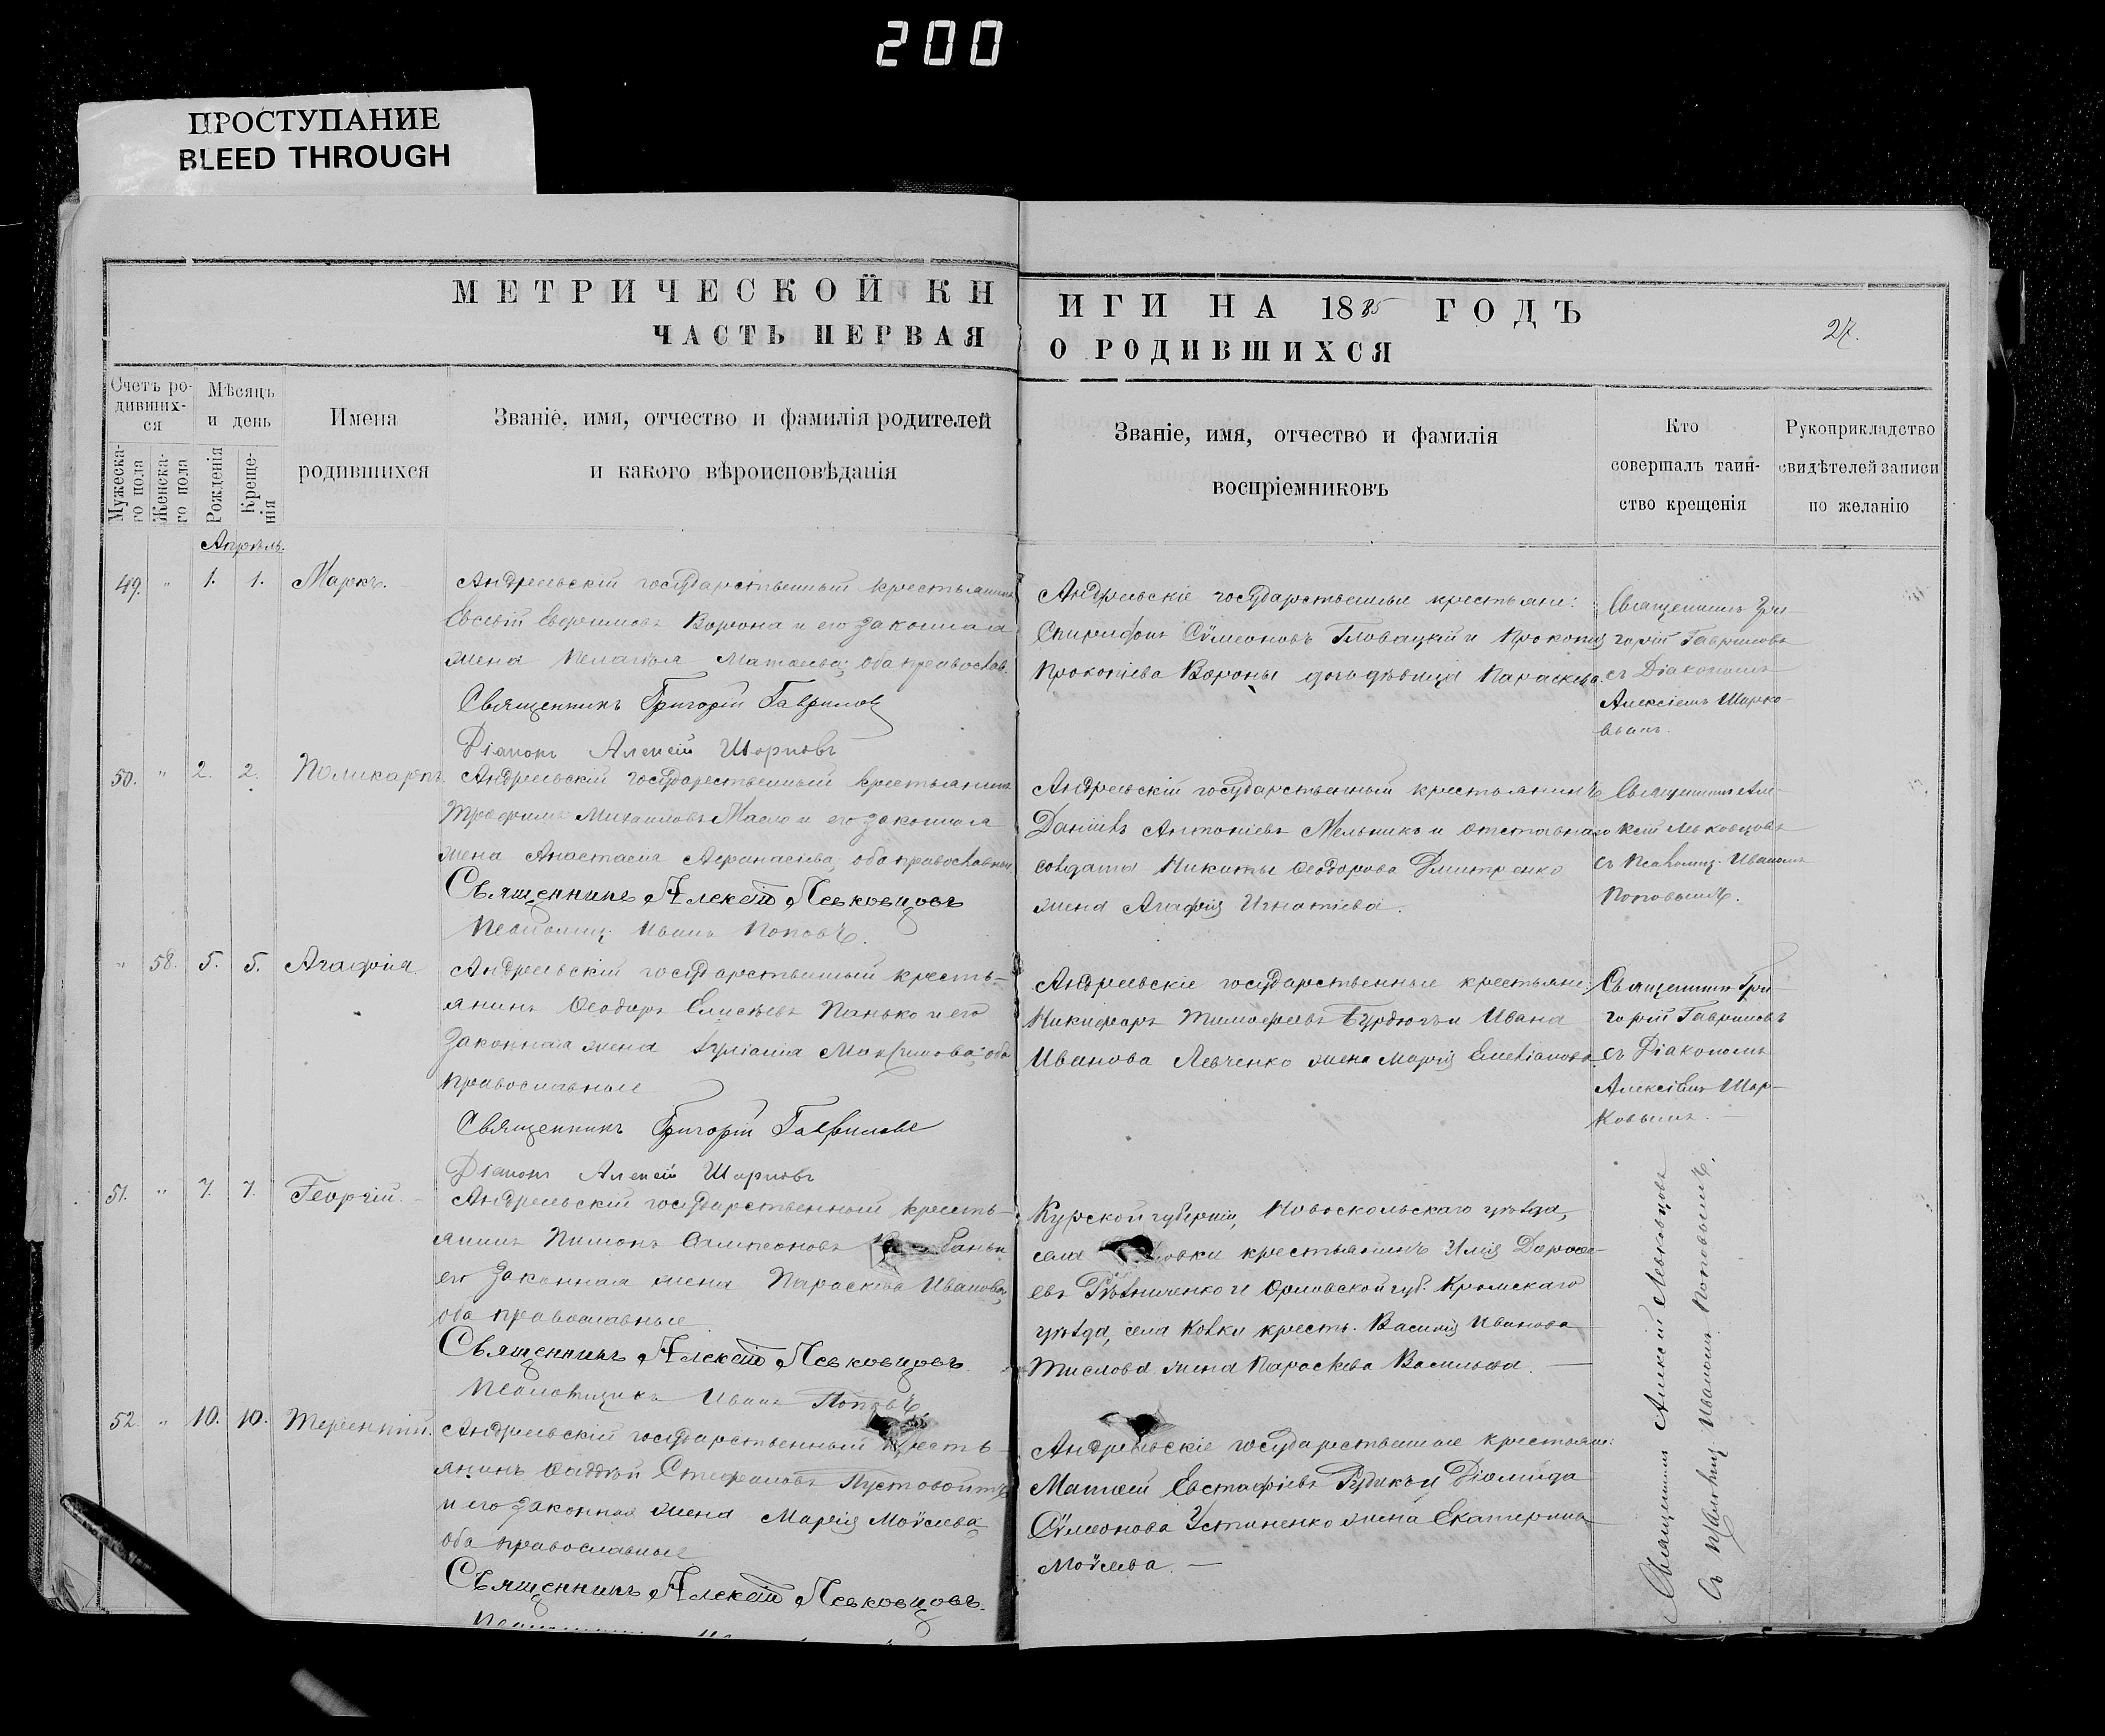 200
ПРОСТУПАНИЕ
BLEED THROUGH
МЕТРИЧЕСКОЙ КН
ИГИ НА 1885 ГОДЪ
27.
ЧАСТЬ ПЕРВАЯ
О РОДИВШИХСЯ
Счетъ ро-
дивших-
ся
Мужеска-
го пола
Женска-
го пола
Мѣсяцъ
и день
Рожденія
Креще-
нія
Имена
родившихся
Званіе, имя, отчество и фамилія родителей
и какого вѣроисповѣданія
Званіе, имя, отчество и фамилія
воспріемниковъ
Кто
совершалъ таин-
ство крещенія
Рукоприкладство
свидѣтелей записи
по желанію
Апрѣль.
49. " 1. 1. Маркъ.
Андреевскій государственный крестьянинъ
Ворона и его законная
жена Пелагія Матѳіева; оба православ.
Священникъ Григорій Гавриловъ
Діаконъ Алексій Шарковъ
Андреевскіе государственные крестьяне:
Спиридонъ Сѵмеоновъ Гловацкій и Прокопія
Прокопіева Вороны дочь дѣвица Параскева.
Священникъ Гри-
горій Гавриловъ
съ Діакономъ
Алексіемъ Шарко-
вымъ.
50. " 2. 2. Поликарпъ
Андреевскій государственный крестьянинъ
Трофимъ Михаиловъ Масло и его законная
жена Анастасія Аѳанасіева; оба православные
Священникъ Алексій Левковцовъ
Псаломщ. Иванъ Поповъ.
Андреевскій государственный крестьянинъ
Даніилъ Антоніевъ Мельникъ и отставнаго
солдата Никиты Ѳеодорова Дмитренко
жена Агафія Игнатіева.
Священникъ Але-
ксій Левковцовъ
съ Псаломщ. Иваномъ
Поповымъ.
" 58. 5. 5. Агафія.
Андреевскій государственный кресть-
янинъ Ѳеодоръ Елисѣевъ Панько и его
законная жена Іуліанія Максимова: оба
православные
Священникъ Григорій Гавриловъ
Діаконъ Алексій Шарковъ
Андреевскіе государственные крестьяне:
Никифоръ Тимофеевъ Бурдюгъ и Ивана
Иванова Левченко жена Марія Емеліанова.
Священникъ Гри-
горій Гавриловъ
съ Діакономъ
Алексіемъ Шар-
ковымъ.
51. " 7. 7. Георгій.
Андреевскій государственный кресть-
янинъ Пименъ Сампсоновъ
его законная жена Параскева Иванова,
оба православные
Священникъ Алексій Левковцовъ
Псаломщикъ Иванъ Поповъ.
Курской губерніи, Новоскольскаго уѣзда,
села крестьянинъ Илія Дороѳе-
евъ и Орловской губ. Кромскаго
уѣзда, села кресть. Василія Иванова
жена Параскева Васильева.
52. " 10. 10. Терентій.
Андреевскій государственный кресть-
янинъ Ѳаддѣй Стефановъ Пустовойтъ
и его законная жена Марія Моѵсеева
оба православные
Священникъ Алексій Левковцовъ.
Андреевскіе государственные крестьяне:
Матѳей Евстафіевъ Рудикъ и Діомида
Сѵмеонова Устименко жена Екатерина
Моѵсеева.
Священникъ Алексій Левковцовъ
съ псаломщ. Иваномъ Поповымъ.